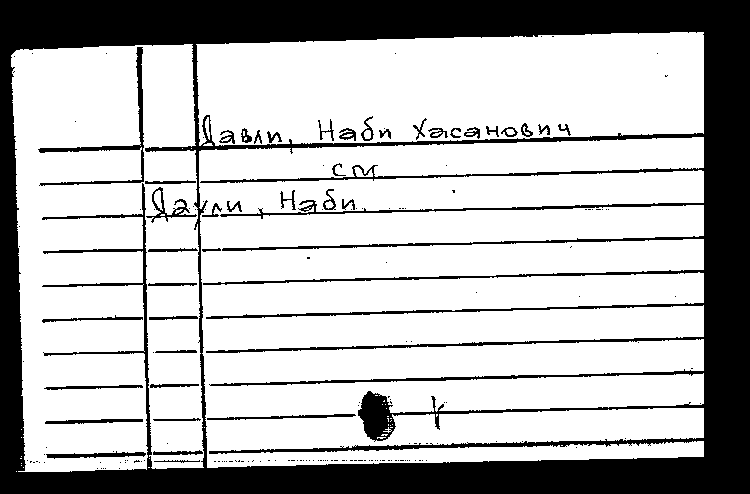 Давли, Наби Хасанович
см
Даули, Наби.